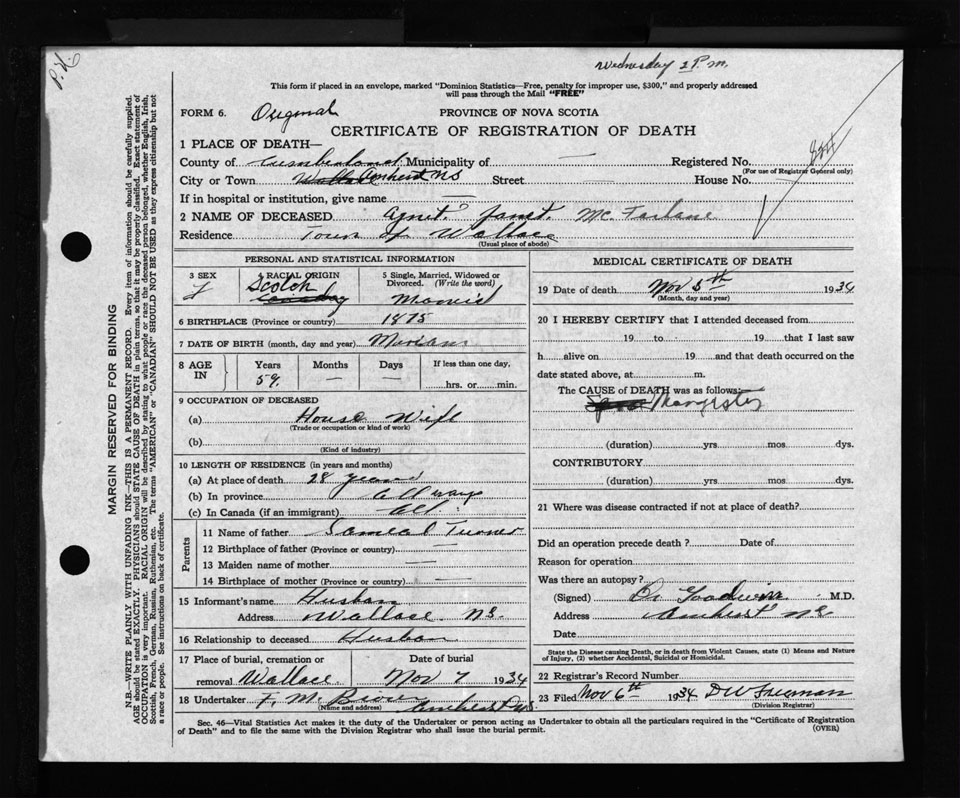 Wednesday 2 P.m.
This form if placed in an envelope, marked "Dominion Statistics—Free, penalty for improper use, $300," and properly addressed
will pass through the Mail "FREE"
FORM 6. Original PROVINCE OF NOVA SCOTIA
CERTIFICATE OF REGISTRATION OF DEATH
1 PLACE OF DEATH—
County of Cumberland Municipality of — Registered No.
(For use of Registrar General only)
City or Town Amherst NS Street — House No.
If in hospital or institution, give name
2 NAME OF DECEASED Janet Mc Farlane
Residence Town of Wallace
(Usual place of abode)
PERSONAL AND STATISTICAL INFORMATION
3 SEX 4 RACIAL ORIGIN 5 Single, Married, Widowed or Divorced. (Write the word)
f Scotch Married
6 BIRTHPLACE (Province or country) 1875
7 DATE OF BIRTH (month, day and year)
8 AGE IN Years Months Days If less than one day,
59 — — hrs. or min.
9 OCCUPATION OF DECEASED
(a) House Wife
(Trade or occupation or kind of work)
(b)
(Kind of industry)
10 LENGTH OF RESIDENCE (in years and months)
(a) At place of death 28 years
(b) In province All ways
(c) In Canada (if an immigrant) All
Parents
11 Name of father Turner
12 Birthplace of father (Province or country) —
13 Maiden name of mother —
14 Birthplace of mother (Province or country) —
15 Informant's name Husban
Address Wallace N.S.
16 Relationship to deceased Husban
17 Place of burial, cremation or removal Wallace Date of burial Nov 7 1934
18 Undertaker F. M. Brown Amherst N.S.
(Name and address)
MEDICAL CERTIFICATE OF DEATH
19 Date of death Nov 5th 1934
(Month, day and year)
20 I HEREBY CERTIFY that I attended deceased from
19 to 19 that I last saw
h alive on 19 and that death occurred on the
date stated above, at m.
The CAUSE of DEATH was as follows:
(duration) yrs mos dys.
CONTRIBUTORY
(duration) yrs mos dys.
21 Where was disease contracted if not at place of death?
Did an operation precede death? Date of
Reason for operation
Was there an autopsy?
(Signed) Dr Goodwin M.D.
Address Amherst NS
Date
State the Disease causing Death, or in death from Violent Causes, state (1) Means and Nature
of Injury, (2) whether Accidental, Suicidal or Homicidal.
22 Registrar's Record Number
23 Filed Nov 6th 1934
(Division Registrar)
Sec. 46—Vital Statistics Act makes it the duty of the Undertaker or person acting as Undertaker to obtain all the particulars required in the "Certificate of Registration
of Death" and to file the same with the Division Registrar who shall issue the burial permit. (OVER)
MARGIN RESERVED FOR BINDING
N.B.—WRITE PLAINLY WITH UNFADING INK—THIS IS A PERMANENT RECORD. Every item of information should be carefully supplied.
AGE should be stated EXACTLY. PHYSICIANS should STATE CAUSE OF DEATH in plain terms, so that it may be properly classified. Exact statement of
OCCUPATION is very important. RACIAL ORIGIN will be described by stating to what people or race the deceased person belonged, whether English, Irish,
Scottish, French, German, Russian, Ruthenian, etc. The terms "AMERICAN" or "CANADIAN" SHOULD NOT BE USED as they express citizenship but not
a race or people. See instructions on back of certificate.